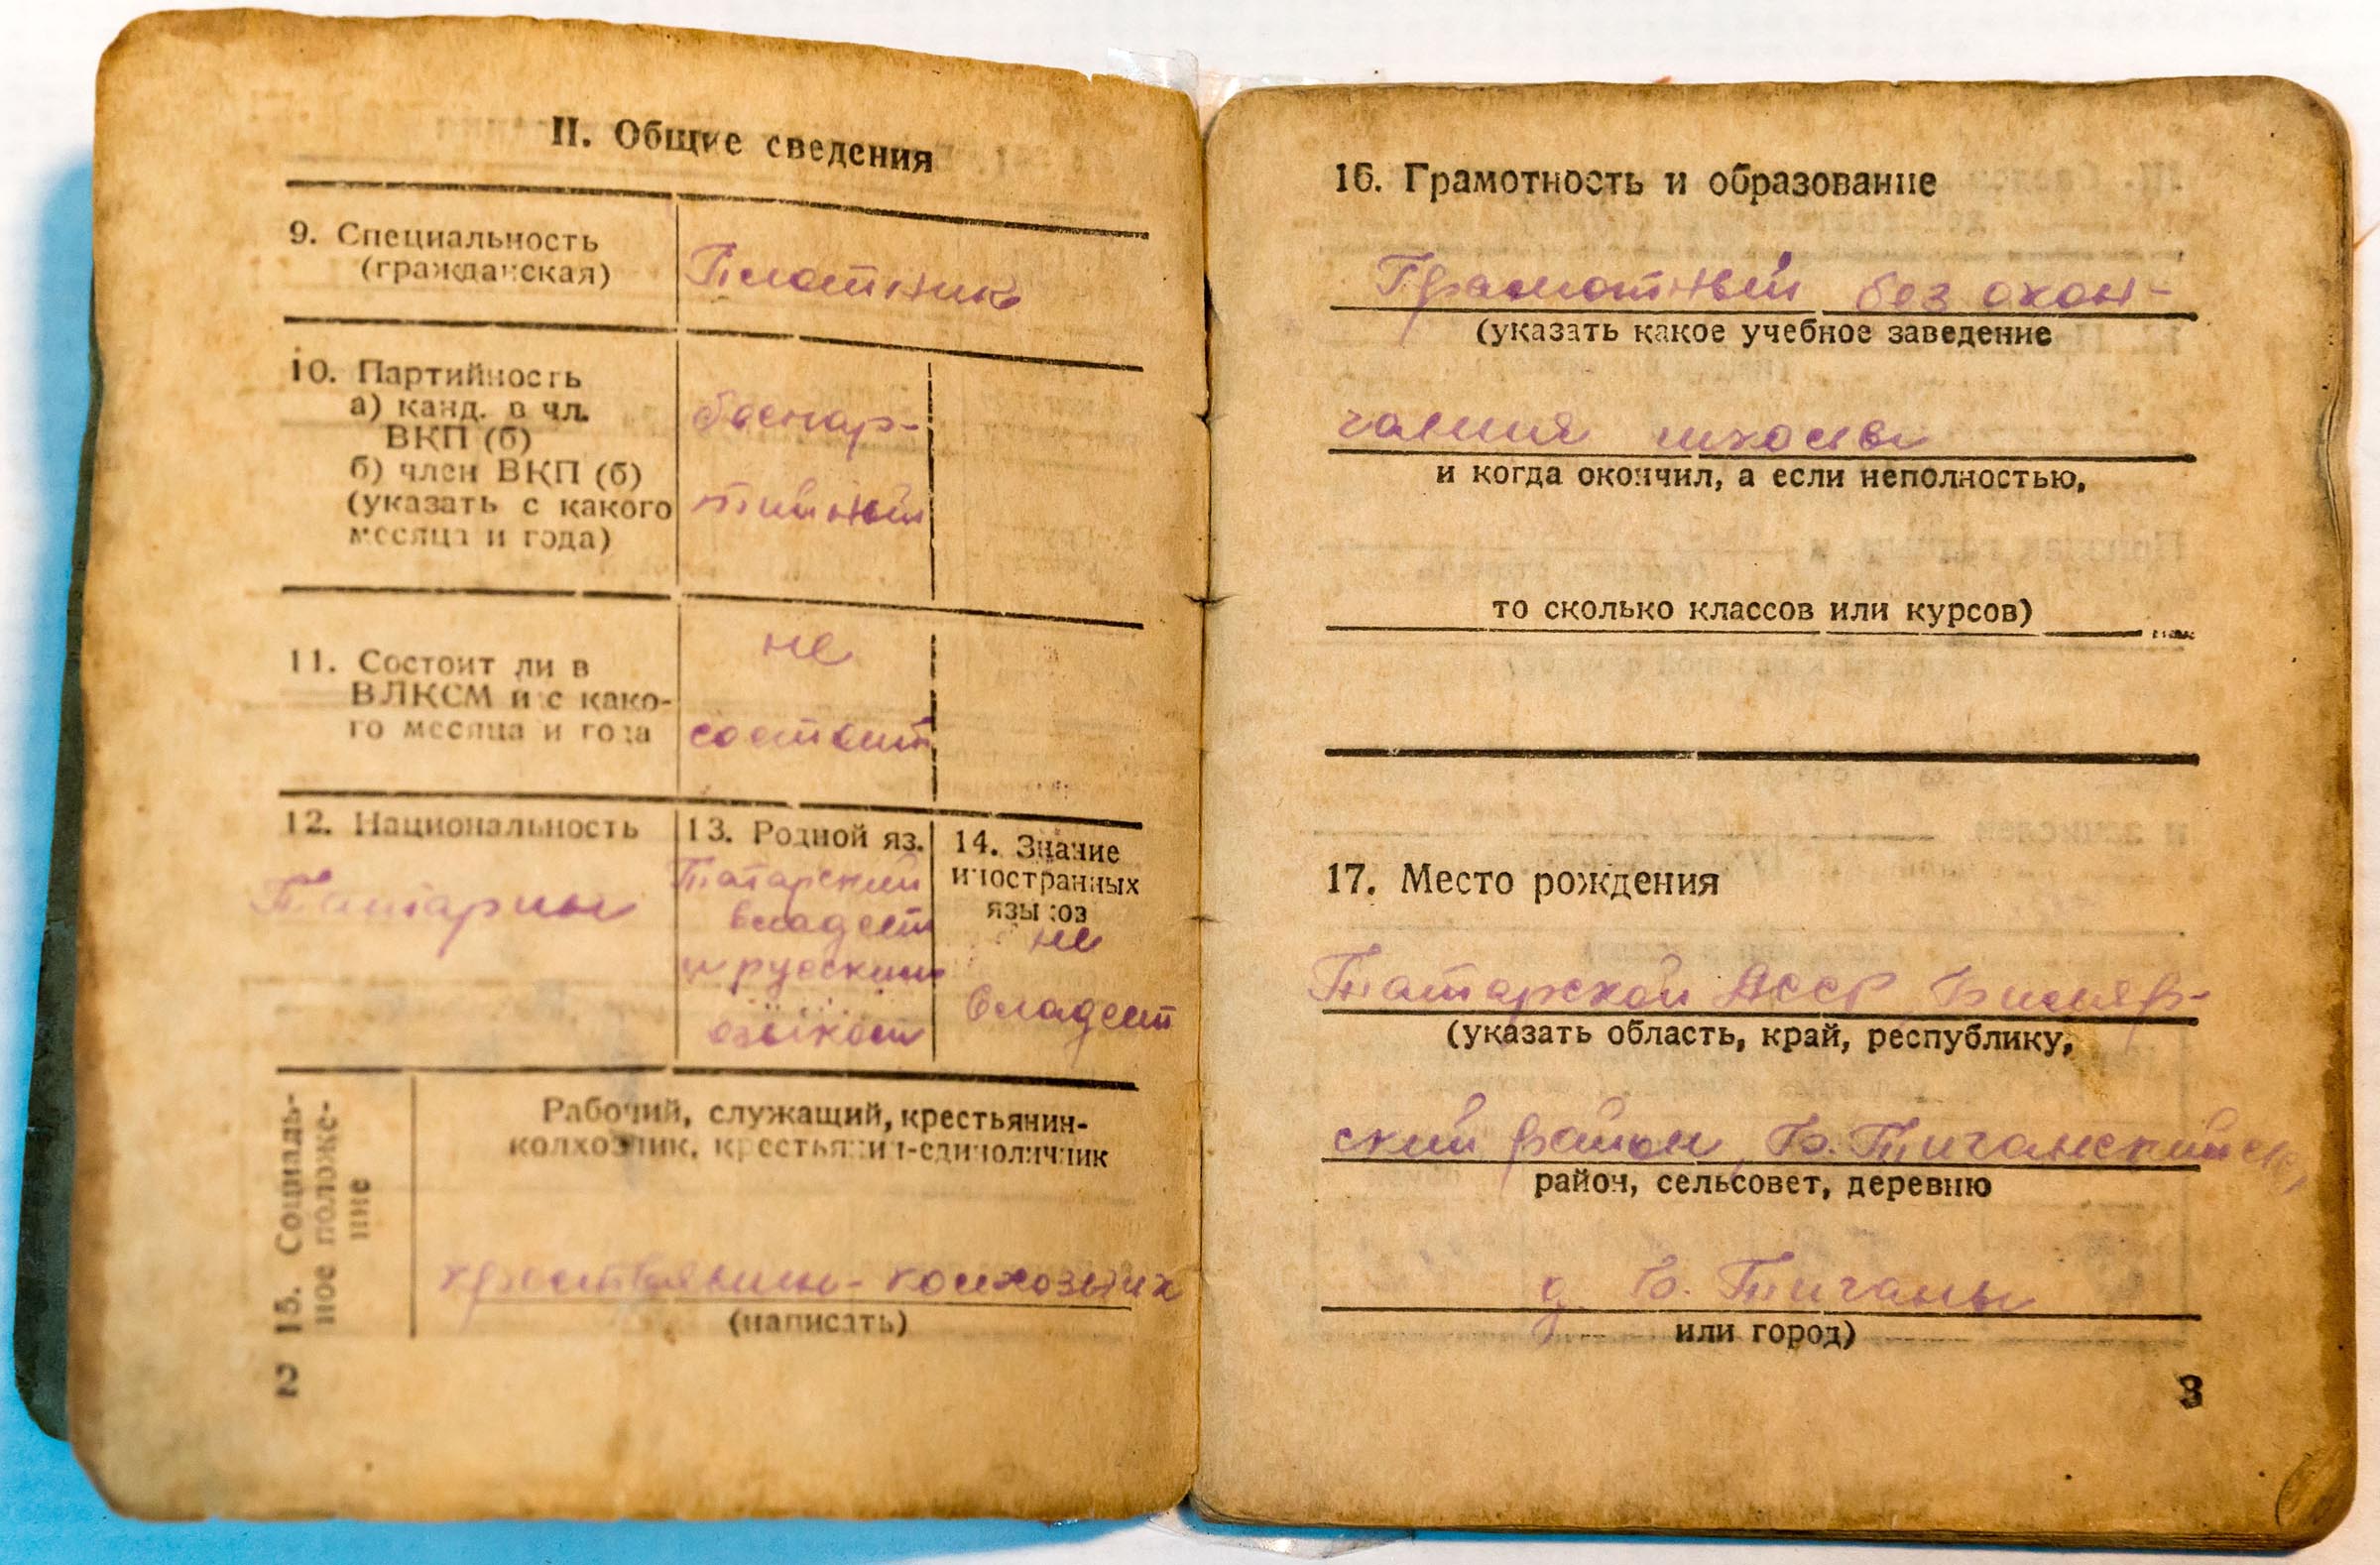 II. Общие сведения
9. Специальность
(гражданская)
Плотник
10. Партийность
а) канд. в чл.
ВКП (б)
б) член ВКП (б)
(указать с какого
месяца и года)
беспар-
тийный
11. Состоит ли в
ВЛКСМ и с како-
го месяца и года
не
состоит
12. Национальность
Татарин
13. Родной яз.
Татарский
владеет
и русским
языком
14. Знание
иностранных
языков
не
владеет
15. Социаль-
ное положе-
ние
Рабочий, служащий, крестьянин-
колхозник, крестьянин-единоличник
крестьянин-колхозник
(написать)
2
16. Грамотность и образование
Грамотный без окон-
(указать какое учебное заведение
чания школы
и когда окончил, а если неполностью,
то сколько классов или курсов)
17. Место рождения
Татарской АССР Биляр-
(указать область, край, республику,
ский район, Б. Тиганский
район, сельсовет, деревню
д. Б. Тиганы
или город)
3